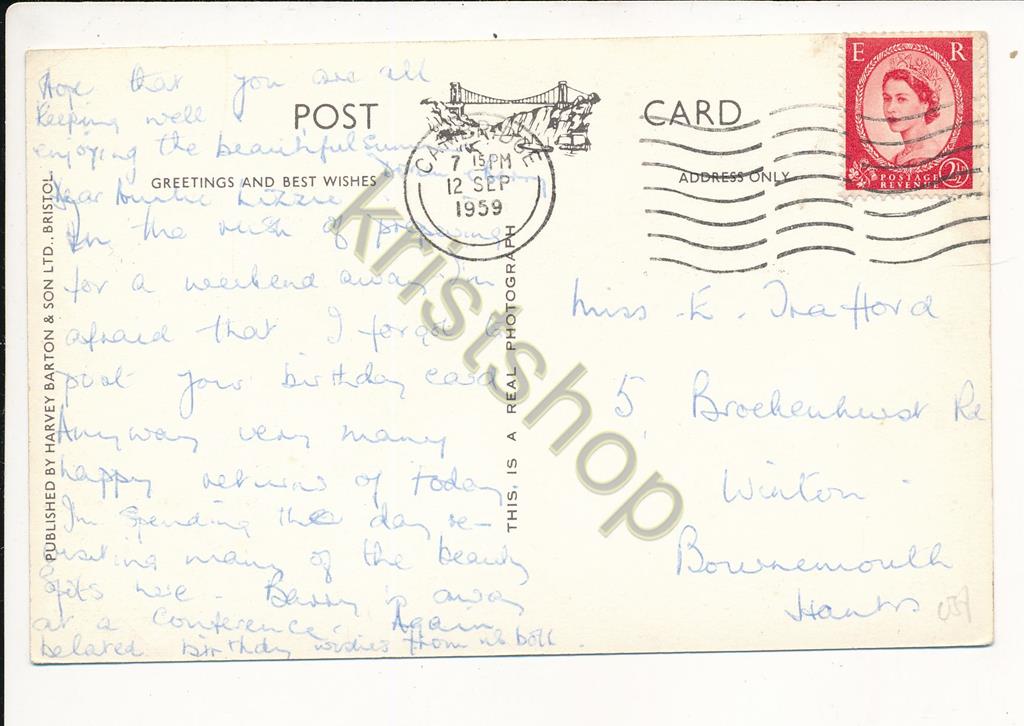 Hope that you are all
keeping well
enjoying the beautiful
POST CARD
GREETINGS AND BEST WISHES
ADDRESS ONLY
Dear Auntie Lizzie
In the rush of preparing
for a weekend away I'm
afraid that I forgot to
post your birthday card
Anyway very many
happy returns of today
I'm spending the day re-
visiting many of the beauty
spots here - Barry is away
at a Conference. Again
belated birthday wishes from us both.
PUBLISHED BY HARVEY BARTON & SON LTD., BRISTOL.
THIS IS A REAL PHOTOGRAPH
7 15 PM
12 SEP
1959
E R
POSTAGE
REVENUE
2½D
Miss E. Trafford
5 Brockenhurst Rd
Winton
Bournemouth
Hants
kristshop